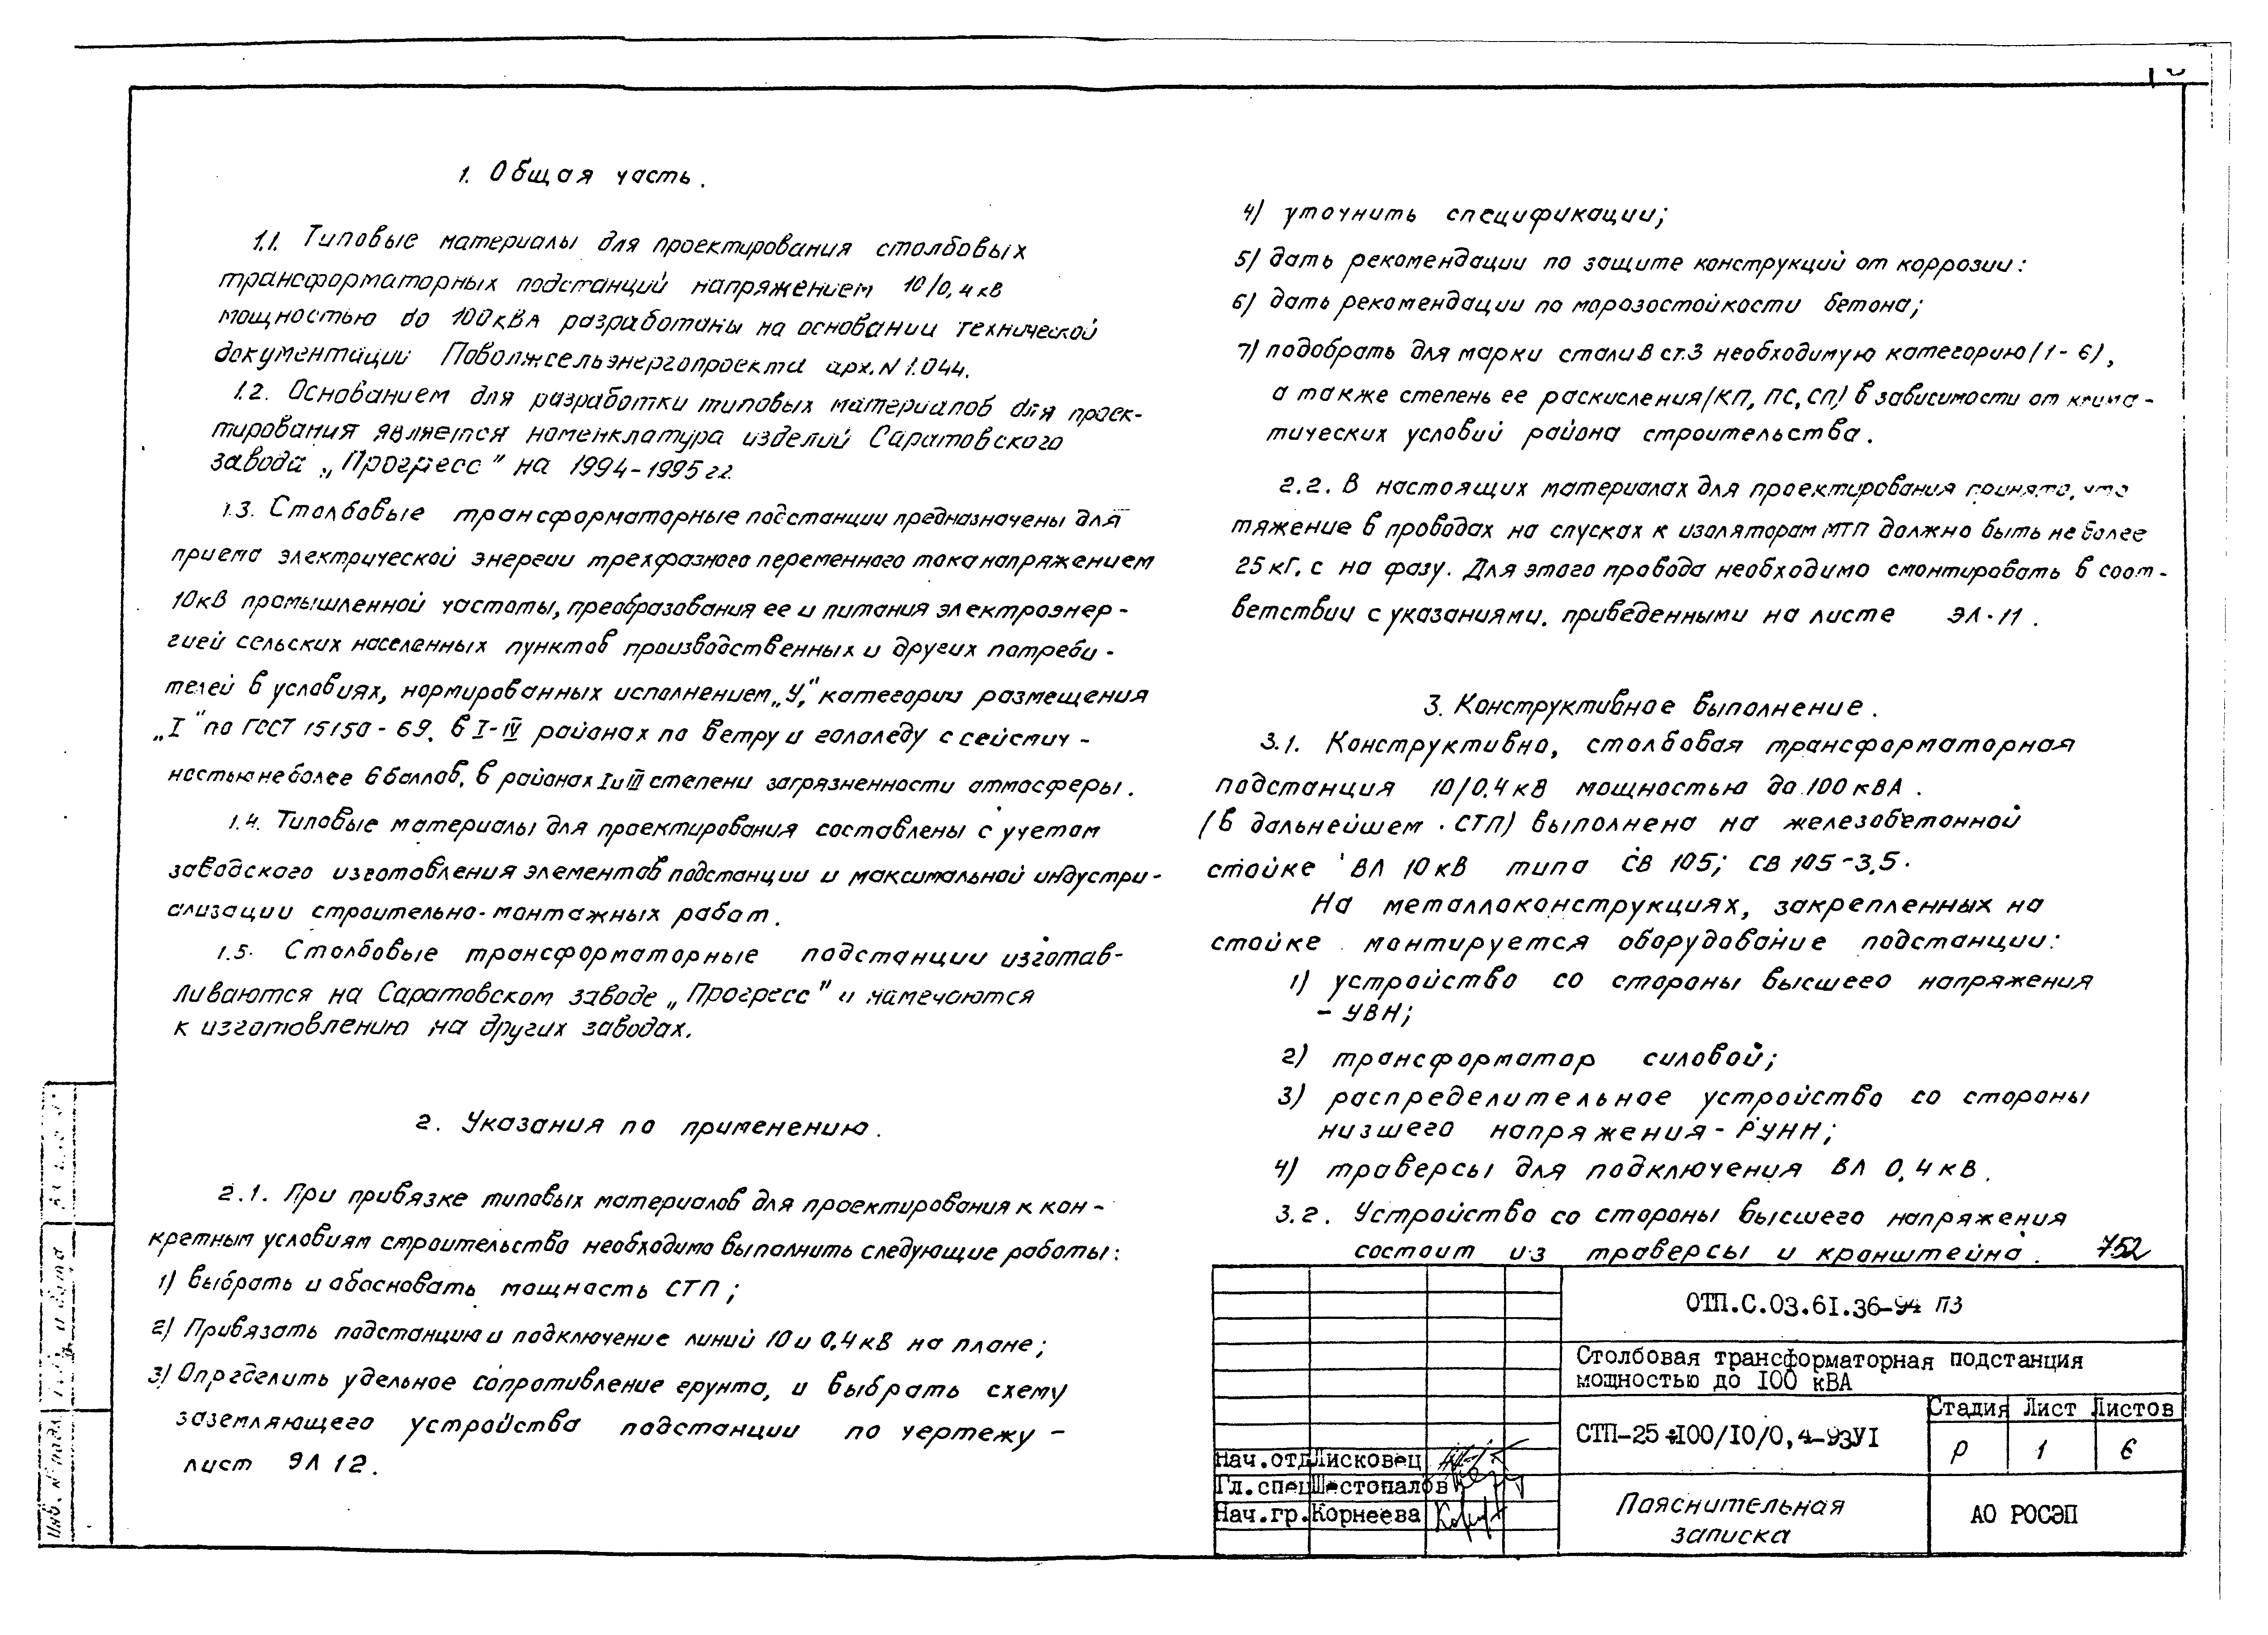 1. Общая часть.
1.1. Типовые материалы для проектирования столбовых
трансформаторных подстанций напряжением 10/0,4 кВ
мощностью до 100 кВА разработаны на основании технической
документации Поволжсельэнергопроекта арх. N 1.044.
1.2. Основанием для разработки типовых материалов для проек-
тирования является номенклатура изделий Саратовского
завода „Прогресс" на 1994-1995 гг.
1.3. Столбовые трансформаторные подстанции предназначены для
приема электрической энергии трехфазного переменного тока напряжением
10 кВ промышленной частоты, преобразования ее и питания электроэнер-
гией сельских населенных пунктов производственных и других потреби-
телей в условиях, нормированных исполнением „У," категории размещения
„I" по ГОСТ 15150-69, в I-IV районах по ветру и гололеду с сейсмич-
ностью не более 6 баллов, в районах I и III степени загрязненности атмосферы.
1.4. Типовые материалы для проектирования составлены с учетом
заводского изготовления элементов подстанции и максимальной индустри-
ализации строительно-монтажных работ.
1.5. Столбовые трансформаторные подстанции изготав-
ливаются на Саратовском заводе „Прогресс" и намечаются
к изготовлению на других заводах.
2. Указания по применению.
2.1. При привязке типовых материалов для проектирования к кон-
кретным условиям строительства необходимо выполнить следующие работы:
1) выбрать и обосновать мощность СТП;
2) Привязать подстанцию и подключение линий 10 и 0,4 кВ на плане;
3) Определить удельное сопротивление грунта, и выбрать схему
заземляющего устройства подстанции по чертежу -
лист ЭЛ 12.
4) уточнить спецификации;
5) дать рекомендации по защите конструкций от коррозии:
6) дать рекомендации по морозостойкости бетона;
7) подобрать для марки стали В ст.3 необходимую категорию (1-6),
а также степень ее раскисления (КП, ПС, СП) в зависимости от клима-
тических условий района строительства.
2.2. В настоящих материалах для проектирования принято, что
тяжение в проводах на спусках к изоляторам МТП должно быть не более
25 кГ.с на фазу. Для этого провода необходимо смонтировать в соот-
ветствии с указаниями, приведенными на листе ЭЛ-11.
3. Конструктивное выполнение.
3.1. Конструктивно, столбовая трансформаторная
подстанция 10/0,4 кВ мощностью до 100 кВА.
(в дальнейшем СТП) выполнена на железобетонной
стойке ВЛ 10 кВ типа СВ 105; СВ 105-3,5.
На металлоконструкциях, закрепленных на
стойке монтируется оборудование подстанции:
1) устройство со стороны высшего напряжения
- УВН;
2) трансформатор силовой;
3) распределительное устройство со стороны
низшего напряжения - РУНН;
4) траверсы для подключения ВЛ 0,4 кВ.
3.2. Устройство со стороны высшего напряжения
состоит из траверсы и кронштейна.
752
ОТП.С.03.61.36-94 ПЗ
Столбовая трансформаторная подстанция
мощностью до 100 кВА
СТП-25÷100/10/0,4-93У1
Стадия Лист Листов
Р 1 6
Нач.отд Лисковец
Гл.спец Шестопалов
Нач.гр. Корнеева
Пояснительная
записка
АО РОСЭП
Инв. № подл.